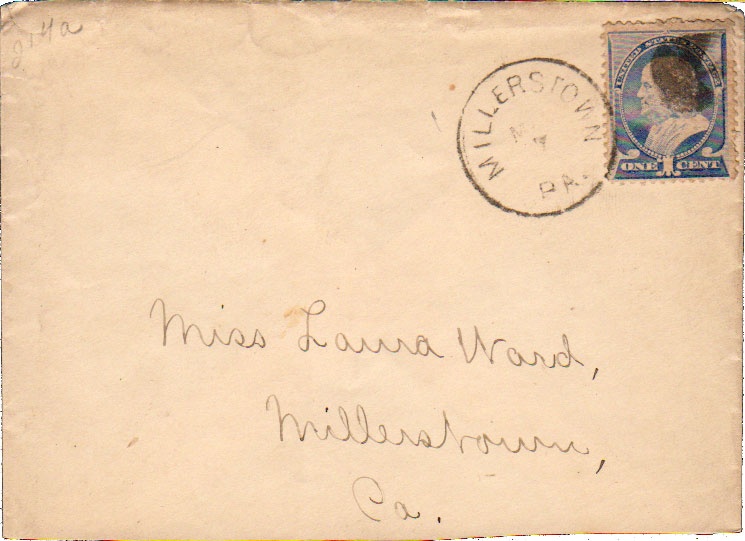 214a
UNITED STATES
ONE CENT
MILLERSTOWN
M
7
PA.
Miss Laura Ward,
Millerstown,
Pa.